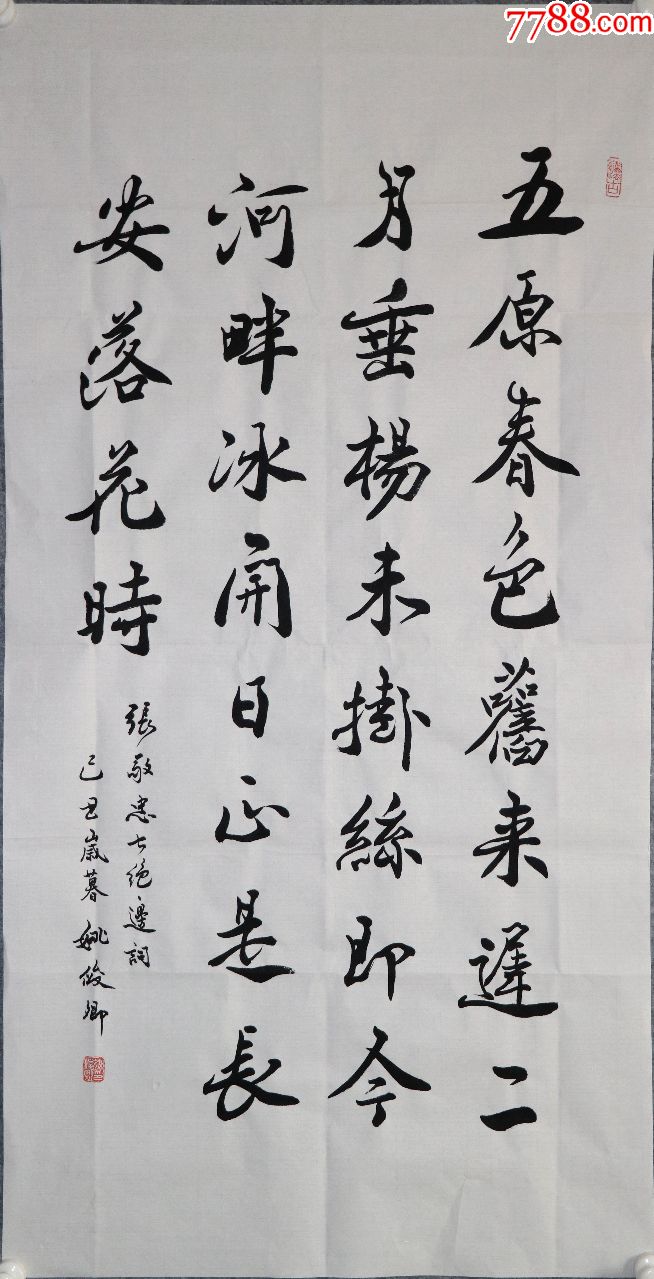 五原春色舊来遲二
月垂楊未掛絲即今
河畔冰開日正是長
安落花時
張敬忠七絕邊詞
己丑歲暮姚俊卿
7788.com